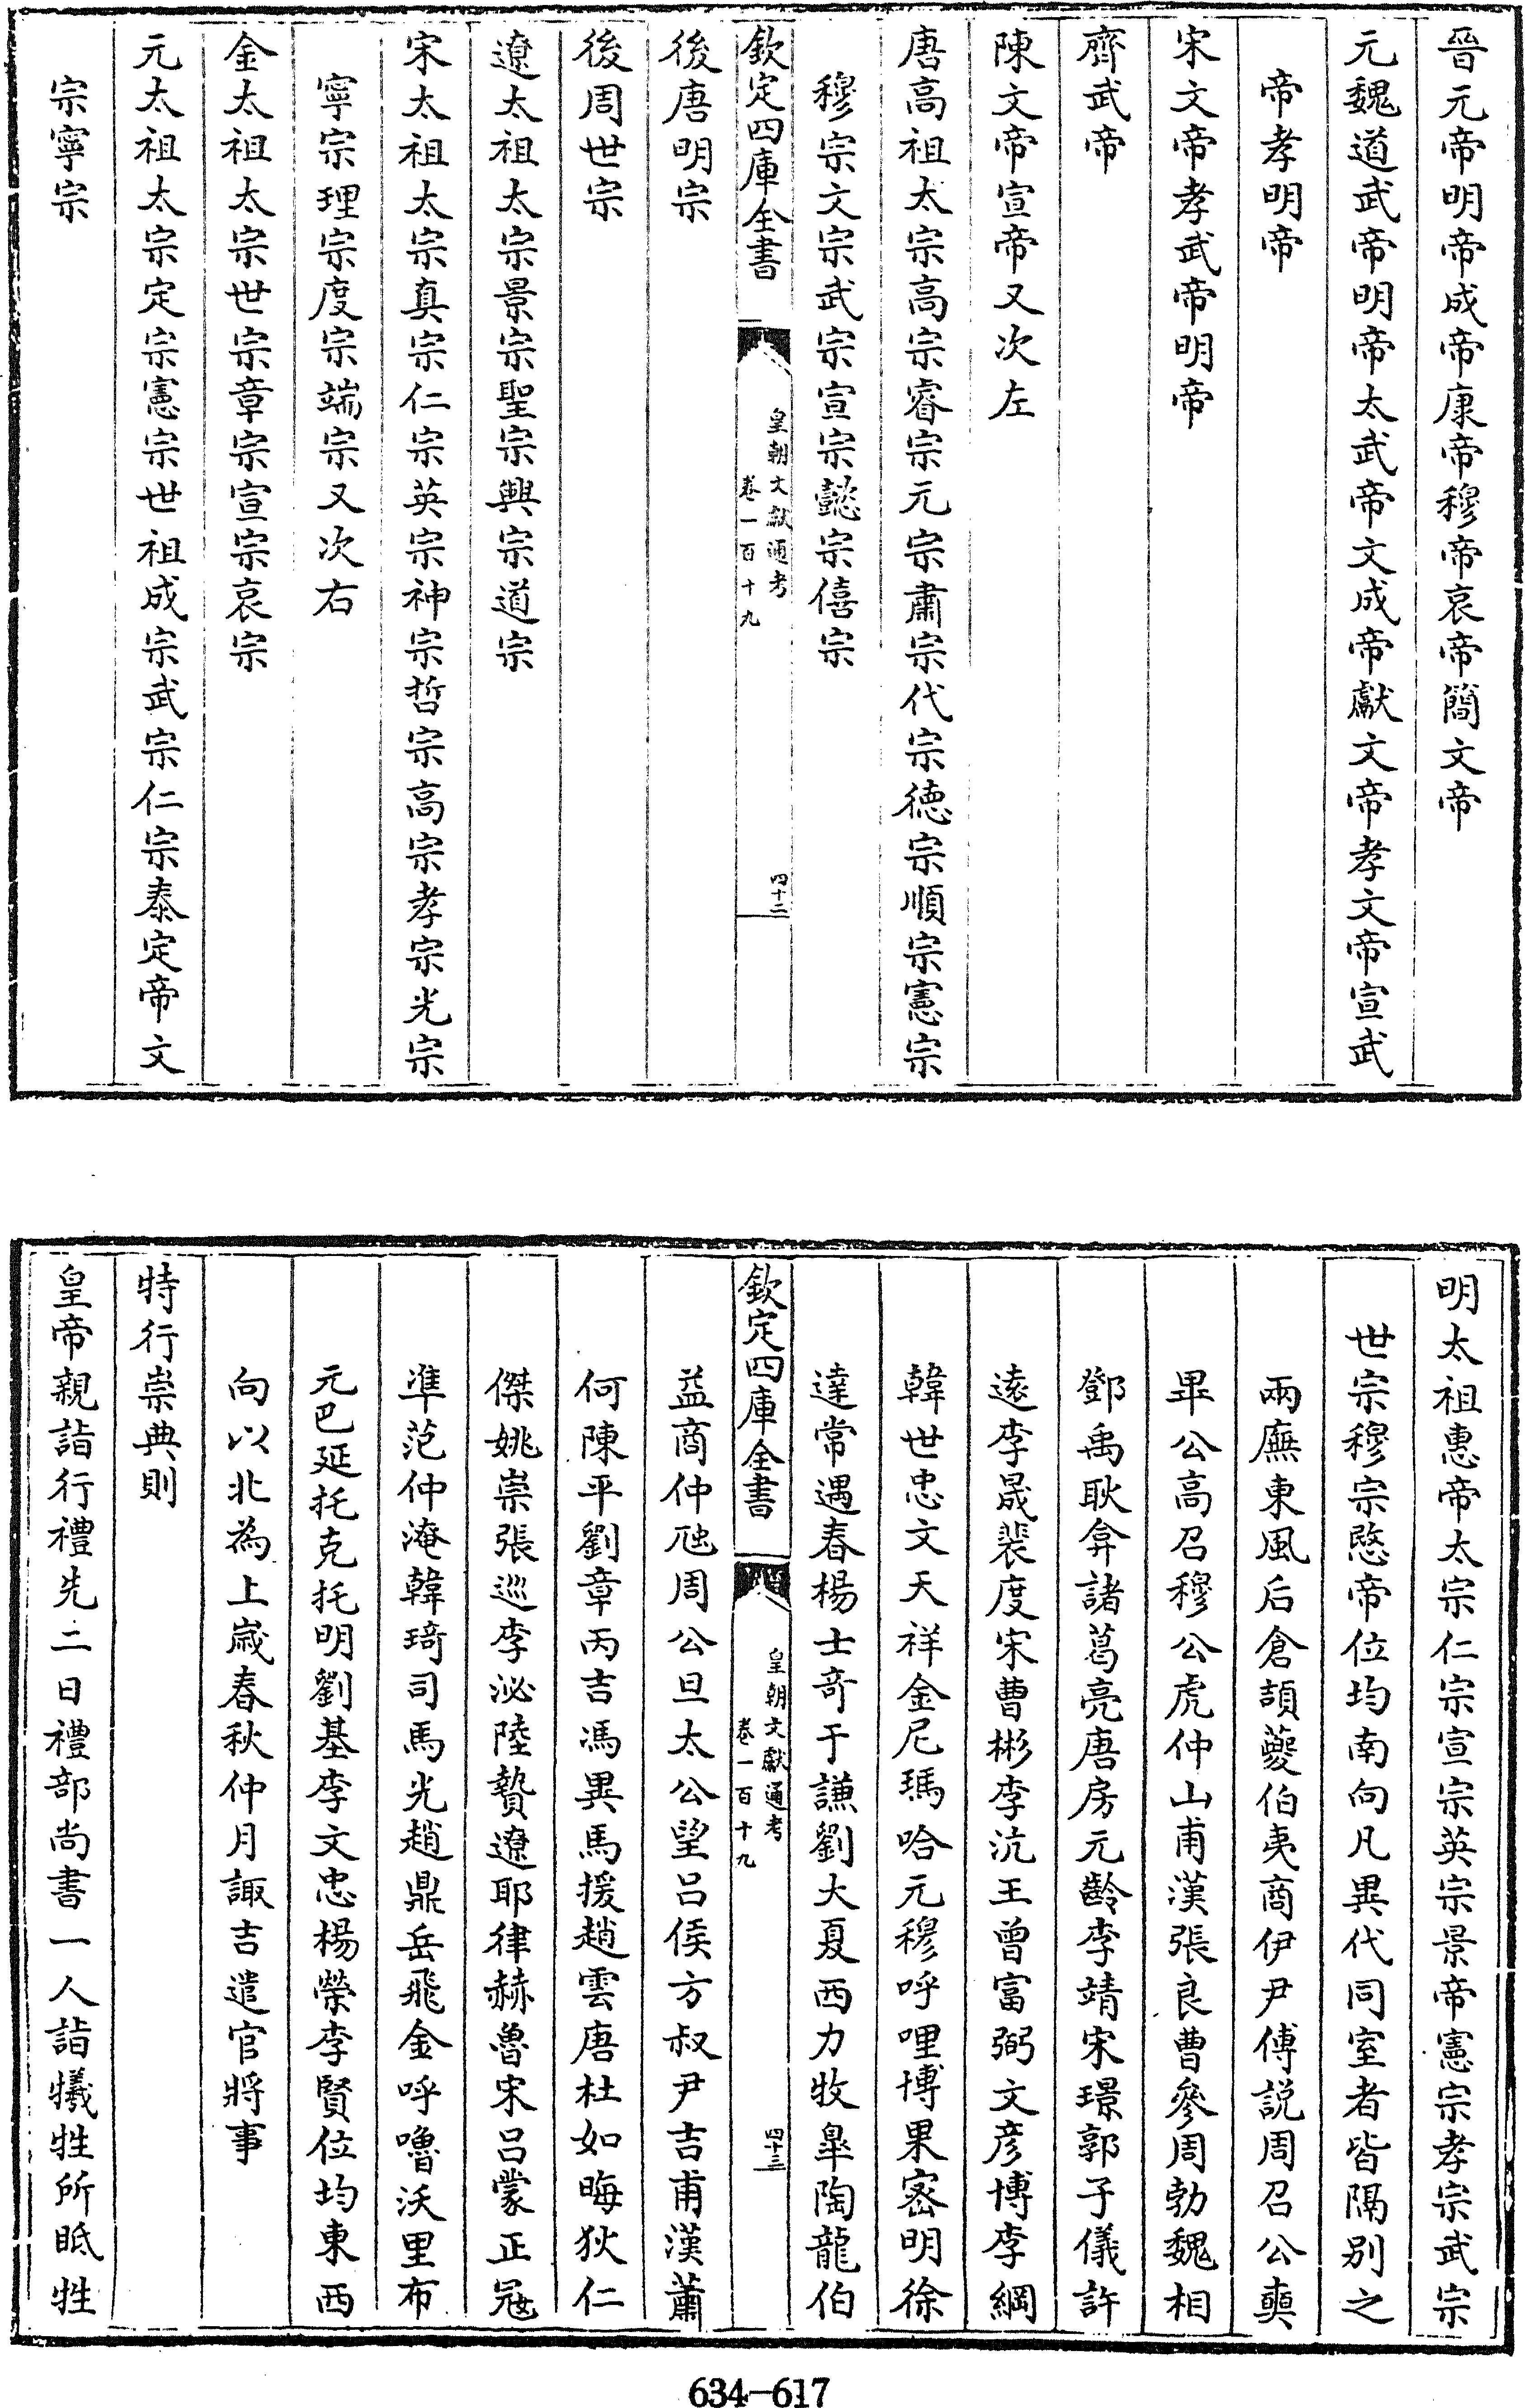 晉元帝明帝成帝康帝穆帝哀帝簡文帝
元魏道武帝明帝太武帝文成帝獻文帝孝文帝宣武
帝孝明帝
宋文帝孝武帝明帝
齊武帝
陳文帝宣帝又次左
唐高祖太宗高宗睿宗元宗肅宗代宗德宗順宗憲宗
穆宗文宗武宗宣宗懿宗僖宗
欽定四庫全書
皇朝文獻通考
卷一百十九
四十二
後唐明宗
後周世宗
遼太祖太宗景宗聖宗興宗道宗
宋太祖太宗真宗仁宗英宗神宗哲宗高宗孝宗光宗
寧宗理宗度宗端宗又次右
金太祖太宗世宗章宗宣宗哀宗
元太祖太宗定宗憲宗世祖成宗武宗仁宗泰定帝文
宗寧宗
明太祖惠帝太宗仁宗宣宗英宗景帝憲宗孝宗武宗
世宗穆宗愍帝位均南向凡異代同室者皆隔別之
兩廡東風后倉頡夔伯夷商伊尹傅説周召公奭
畢公高召穆公虎仲山甫漢張良曹參周勃魏相
鄧禹耿弇諸葛亮唐房元齡李靖宋璟郭子儀許
遠李晟裴度宋曹彬李沆王曾富弼文彥博李綱
韓世忠文天祥金尼瑪哈元穆呼哩博果密明徐
達常遇春楊士奇于謙劉大夏西力牧臯陶龍伯
欽定四庫全書
皇朝文獻通考
卷一百十九
四十三
益商仲虺周公旦太公望吕侯方叔尹吉甫漢蕭
何陳平劉章丙吉馮異馬援趙雲唐杜如晦狄仁
傑姚崇張巡李泌陸贄遼耶律赫魯宋吕蒙正寇
準范仲淹韓琦司馬光趙鼎岳飛金呼嚕沃里布
元巴延托克托明劉基李文忠楊榮李賢位均東西
向以北為上嵗春秋仲月諏吉遣官將事
特行崇典則
皇帝親詣行禮先二日禮部尚書一人詣犧牲所眡牲
634-617